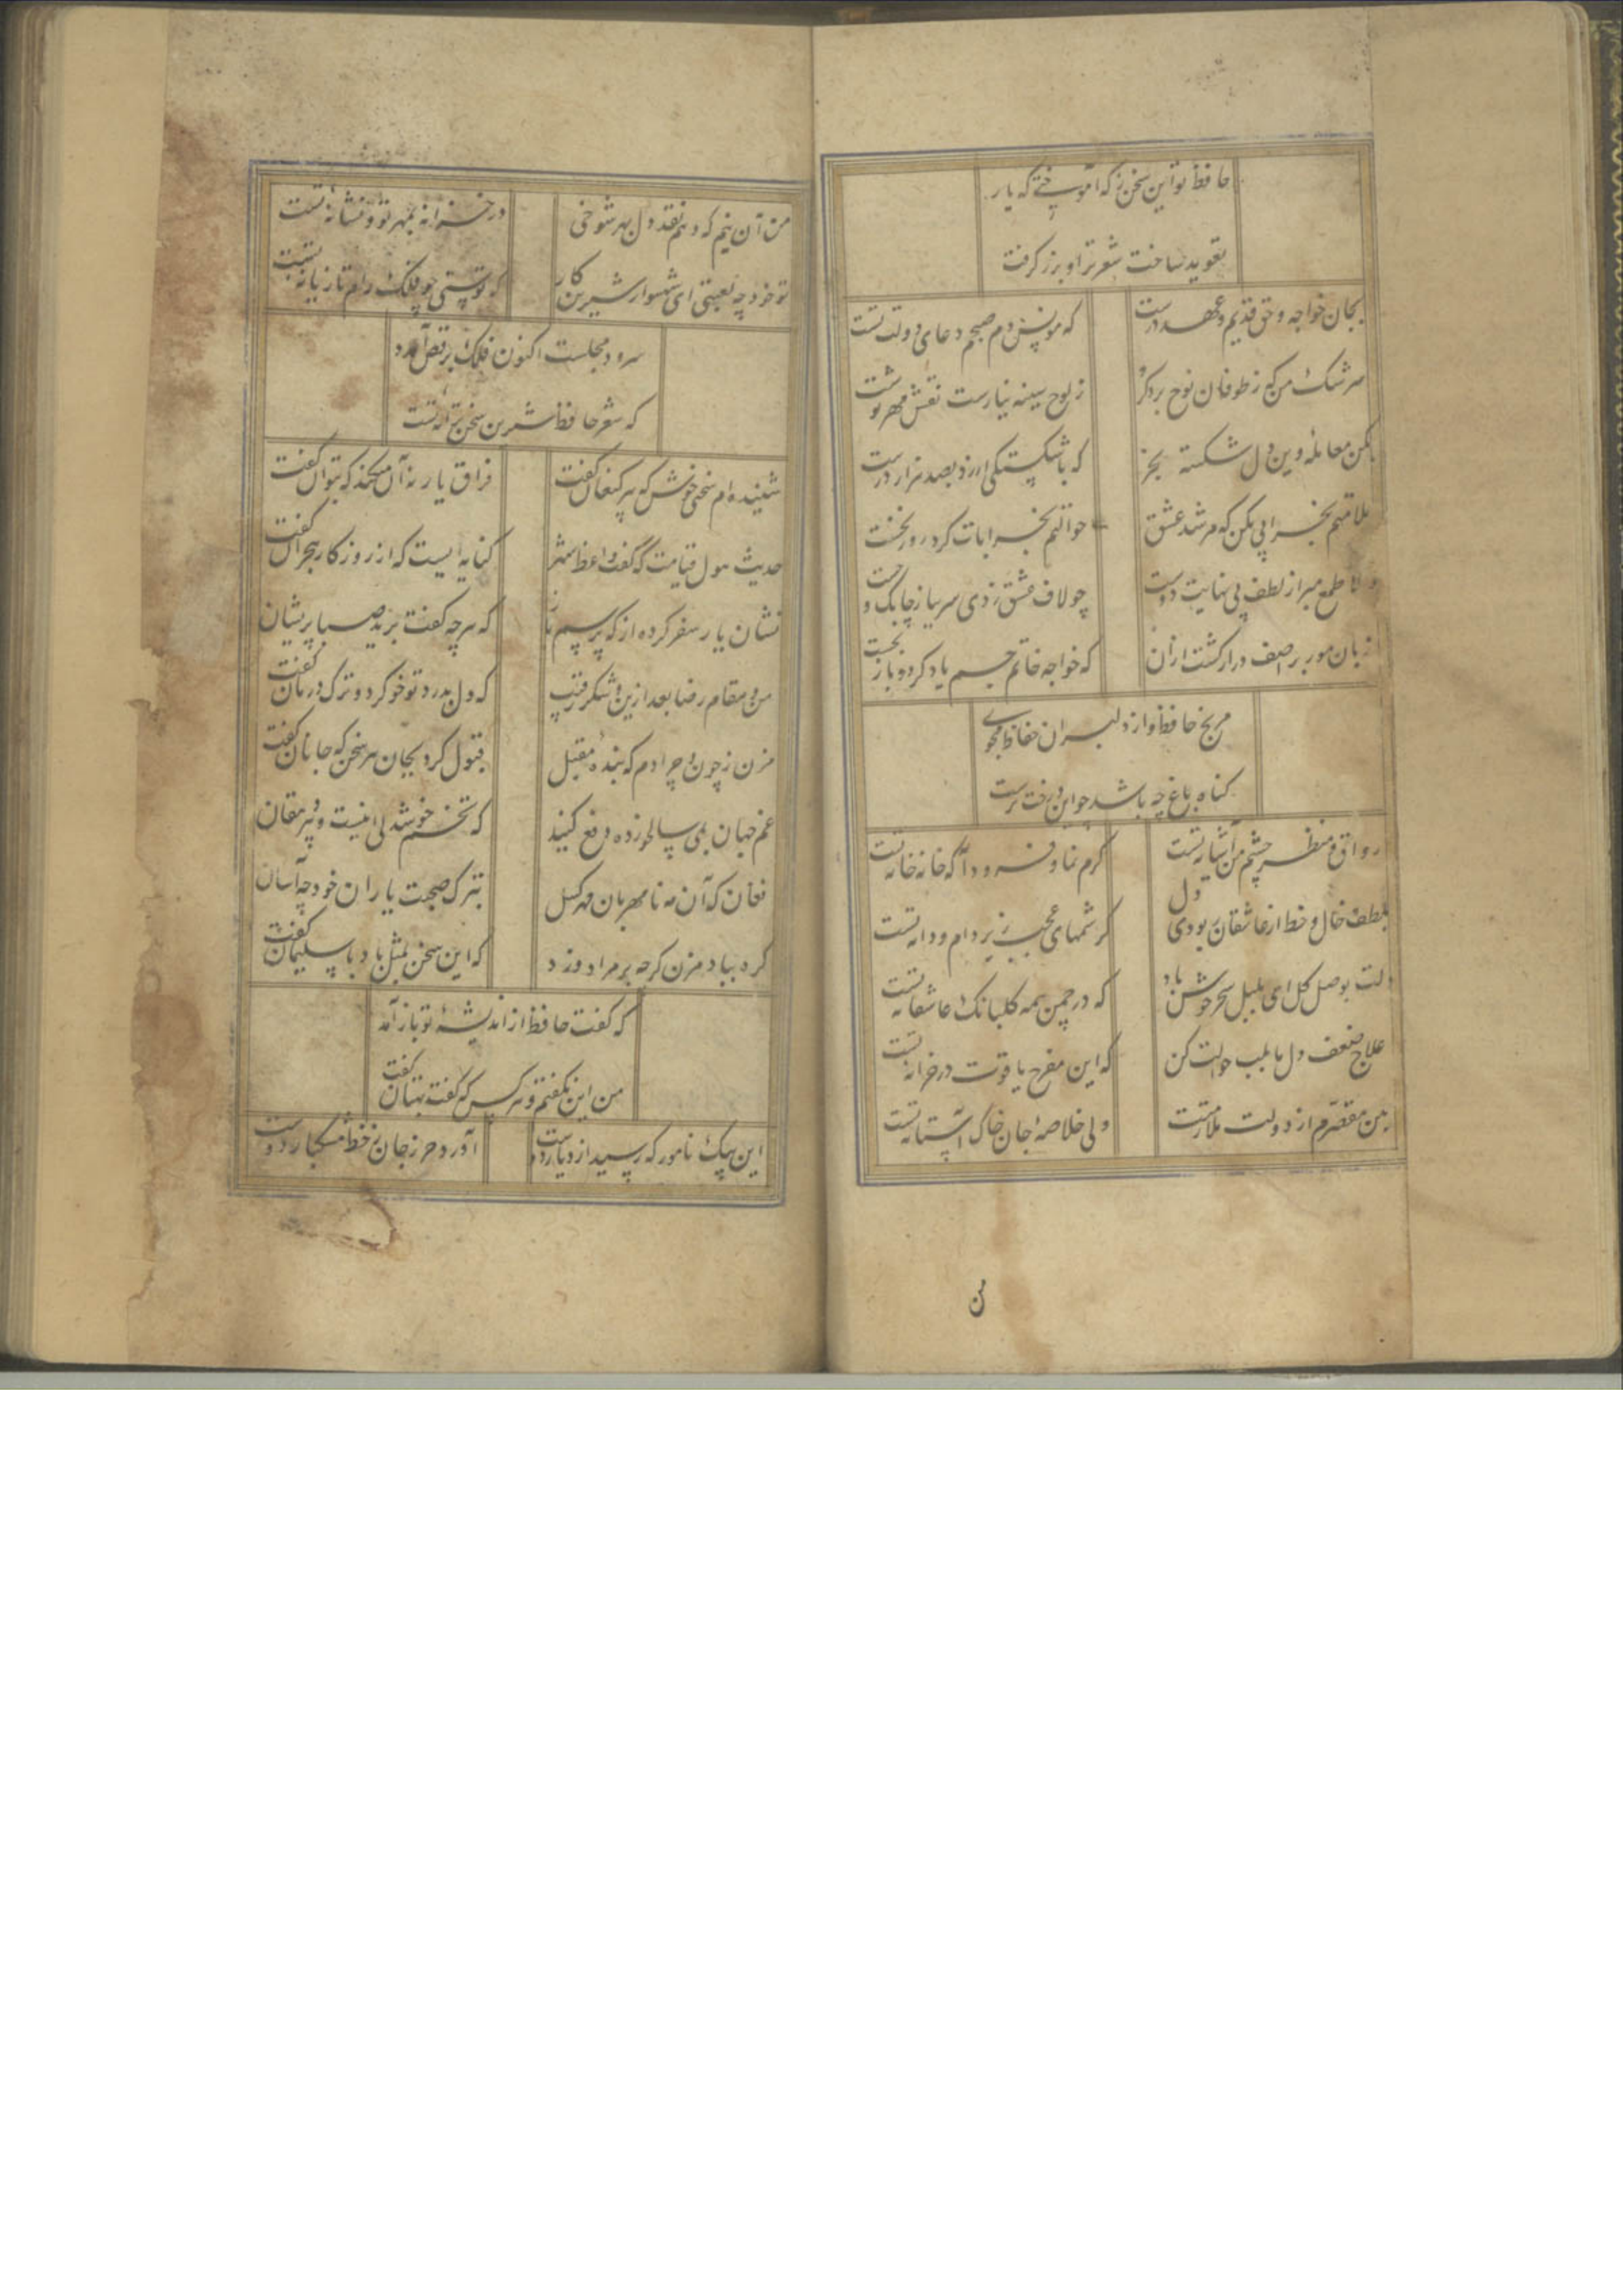 حافظ تو این سخن ز که آموختی که یار
تعویذ ساخت شعر ترا و بزر گرفت
بجان خواجه و حق قدیم و عهد درست
که مونس دم صبحم دعای دولت تست
سرشک من که ز طوفان نوح برد گرو
ز لوح سینه نیارست نقش مهر تو شست
بکن معامله وین دل شکسته بخر
که با شکستگی ارزد بصد هزار درست
ملامتم بخرابی مکن که مرشد عشق
حوالتم بخرابات کرد روز نخست
دلا طمع مبر از لطف بی نهایت دوست
چو لاف عشق زدی سر بباز چابک و چست
زبان مور بر آصف دراز گشت ازان
که خواجه خاتم جم یاد کرد و باز نجست
مرنج حافظ و از دلبران حفاظ مجوی
گناه باغ چه باشد چو این درخت نرست
رواق و منظر چشم من آشیانه تست
کرم نما و فرود آ که خانه خانه تست
بلطف خال و خط از عاشقان ربودی دل
کرشمهای عجب زیر دام و دانه تست
دلت بوصل گل ای بلبل سحر خوش باد
که در چمن همه گلبانگ عاشقانه تست
علاج ضعف دل ما بلب حوالت کن
که این مفرح یاقوت در خزانه تست
بتن مقصرم از دولت ملازمتت
ولی خلاصۀ جان خاک آستانه تست
من آن نیم که دهم نقد دل بهر شوخی
در خزانه بمهر تو و نشانۀ تست
تو خود چه لعبتی ای شهسوار شیرین کار
که توسنی چو فلک رام تازیانه تست
سرود مجلست اکنون فلک برقص آرد
که شعر حافظ شیرین سخن ترانه تست
شنیده ام سخنی خوش که پیر کنعان گفت
فراق یار نه آن میکند که بتوان گفت
حدیث هول قیامت که گفت واعظ شهر
کنایه ایست که از روزگار هجران گفت
نشان یار سفر کرده از که پرسم باز
که هر چه گفت برید صبا پریشان گفت
من و مقام رضا بعد ازین و شکر رقیب
که دل بدرد تو خو کرد و ترک درمان گفت
مزن ز چون و چرا دم که بندۀ مقبل
قبول کرد بجان هر سخن که جانان گفت
غم جهان بمی سالخورده دفع کنید
که تخم خوشدلی اینست و پیر مغان
فغان که آن مه نامهربان مهر گسل
بترک صحبت یاران خود چه آسان
گره بباد مزن گرچه بر مراد وزد
که این سخن بمثل باد با سلیمان گفت
که گفت حافظ از اندیشۀ تو باز آمد
من این نگفتم و هر کس که گفت بهتان گفت
این پیک نامور که رسید از دیار دوست
آورد حرز جان ز خط مشکبار دوست
ن